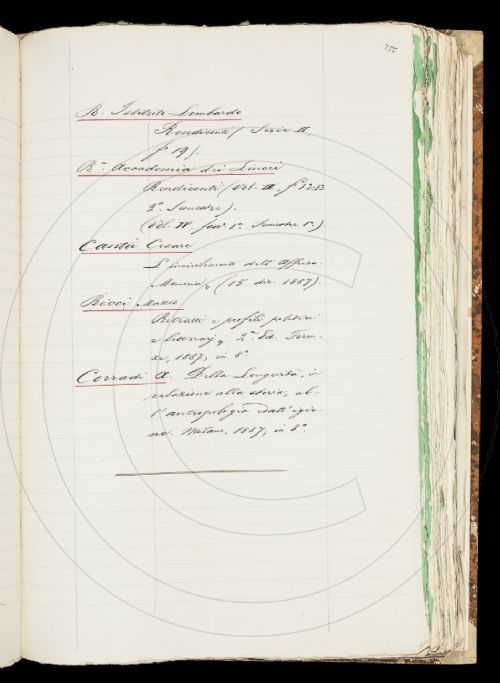 755
R. Istituto Lombardo
Rendiconti (Serie II.
f. 19).
R.a Accademia dei Lincei
Rendiconti (Vol. III. f. 12-13
2.o Semestre).
(Vol. IV. fasc. 1.o Semestre 1.o)
Cantù Cesare
L'incivilimento dell'Affrica.
Memoria, (15 dic. 1887).
Ricci Matteo
Ritratti e profili politici
e letterarj, 2.a Ed. Firen-
ze, 1887, in 8.o
Corradi A. Della Longevità, in
relazione alla storia, al-
l'antropologia e all'igie-
ne. Milano, 1887, in 8.o